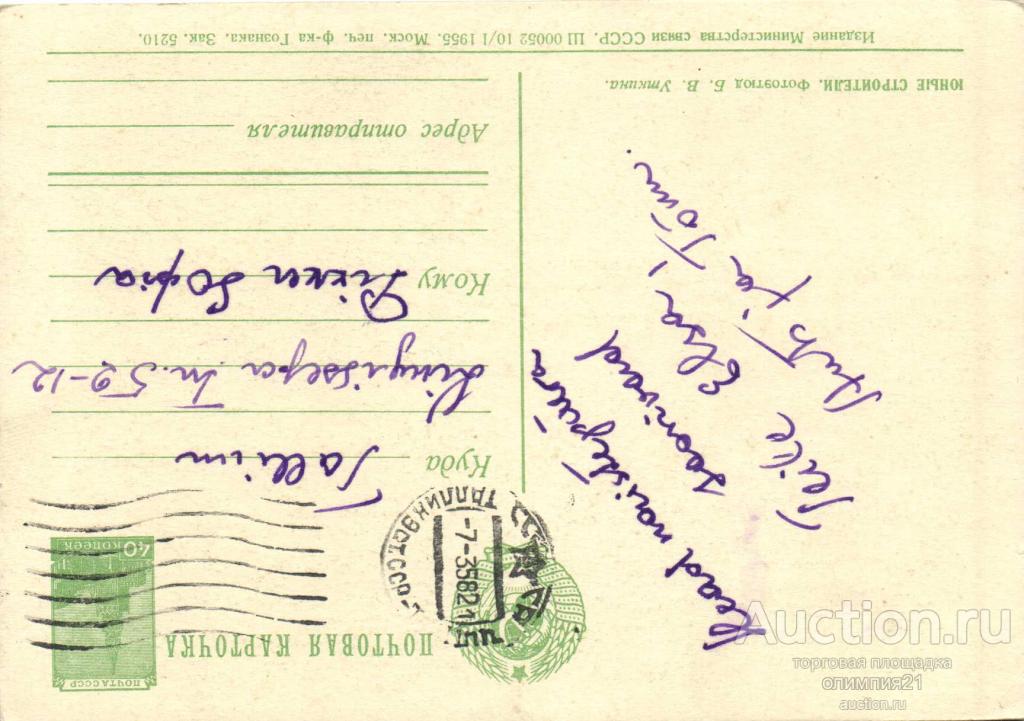 Издание Министерства связи СССР. Ш 00052 10/I 1955. Моск. печ. ф-ка Гознака. Зак. 5210.
ЮНЫЕ СТРОИТЕЛИ. Фотоэтюд Б. В. Уткина.
Head naistepäeva
soovivad
Teile Elsa,
Ants ja
ПОЧТА СССР
40 КОПЕЕК
ПОЧТОВАЯ КАРТОЧКА
ТАЛЛИН ЭСТ.ССР
-7-35821
Куда Tallinn
Kingissepa tn. 59-12
Кому Sofia
Адрес отправителя
Auction.ru
торговая площадка
олимпия21
auction.ru